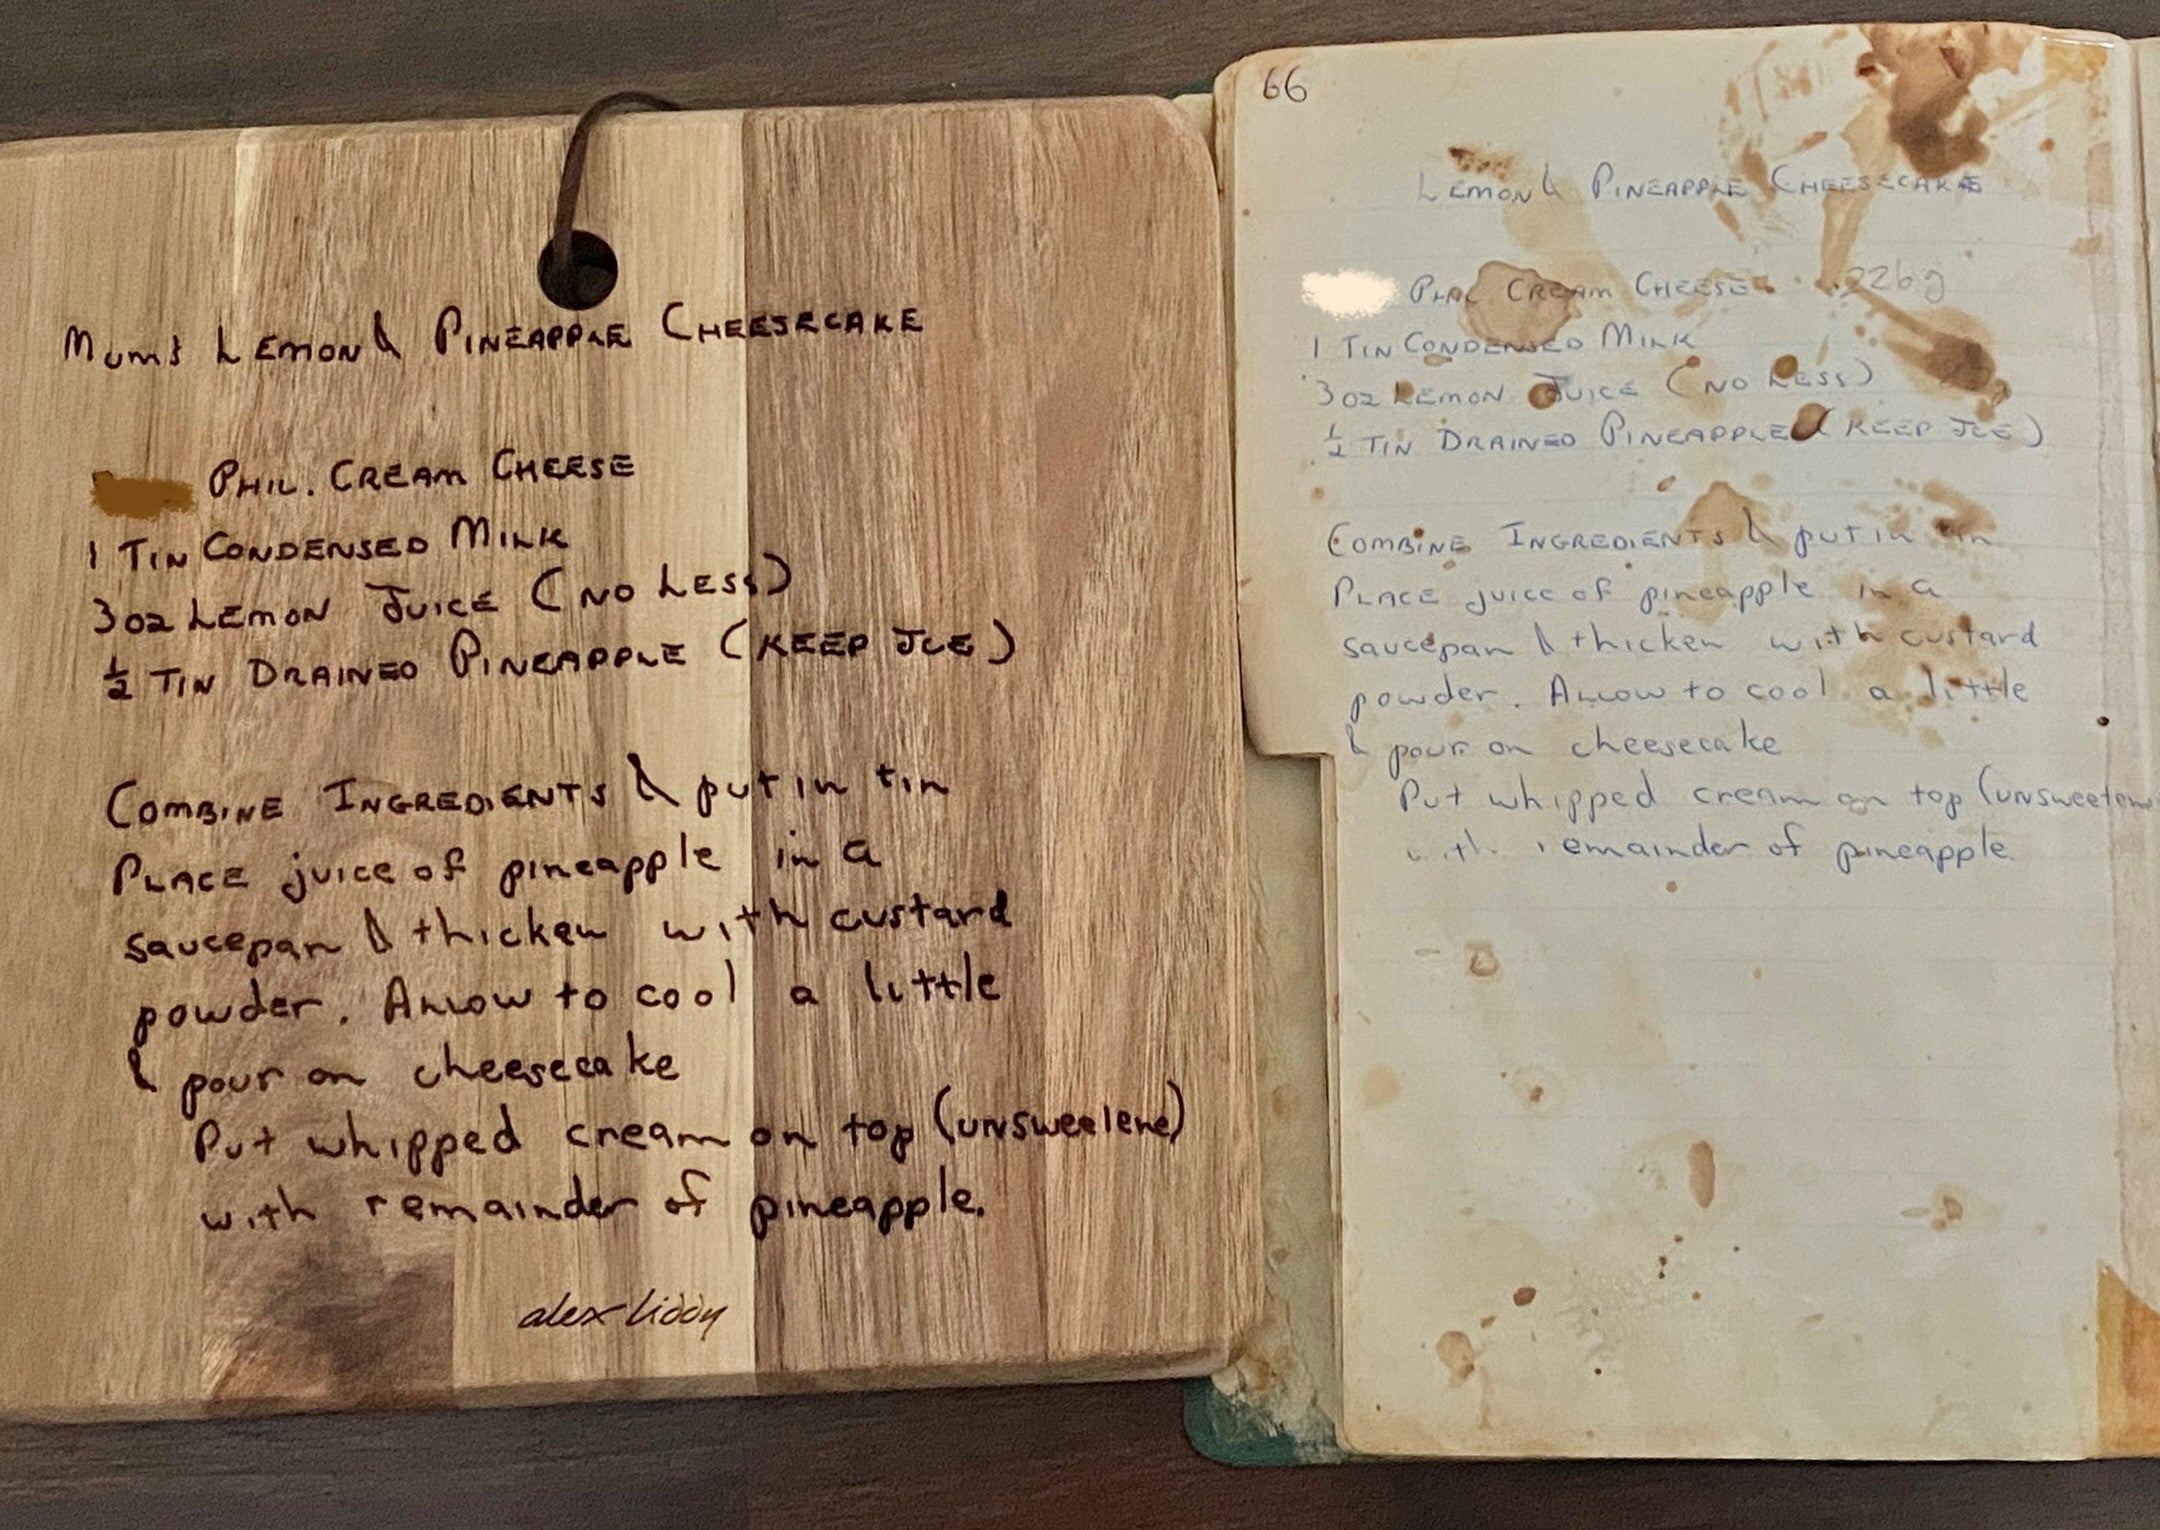 Mum's Lemon & Pineapple Cheesecake
Phil. Cream Cheese
1 Tin Condensed Milk
3oz Lemon Juice (no Less)
½ Tin Drained Pineapple (keep Jce)
Combine Ingredients & put in tin
Place juice of pineapple in a
saucepan & thicken with custard
powder. Allow to cool a little
& pour on cheesecake
Put whipped cream on top (unsweetene)
with remainder of pineapple.
alex liddy
66
Lemon & Pineapple Cheesecake
Phil. Cream Cheese 226g
1 Tin Condensed Milk
3oz Lemon Juice (no Less)
½ Tin Drained Pineapple (keep Jce)
Combine Ingredients & put in tin
Place juice of pineapple in a
saucepan & thicken with custard
powder. Allow to cool a little
& pour on cheesecake
Put whipped cream on top (unsweetene
with remainder of pineapple.